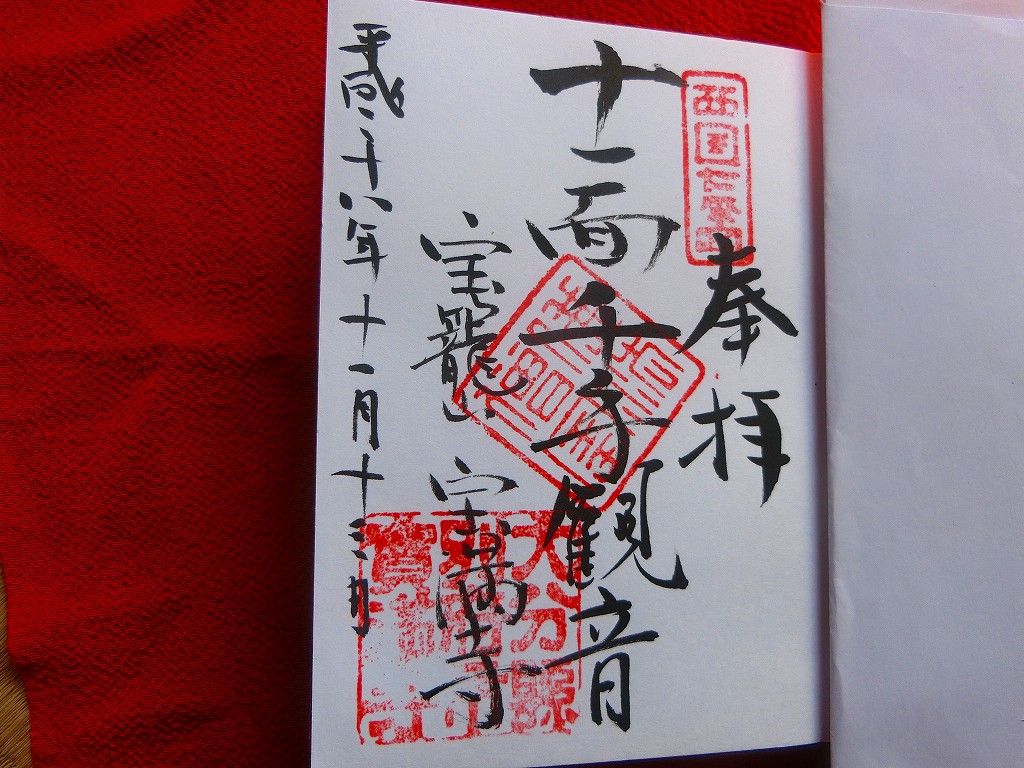 奉拝
十一面千手観音
宝龍山 宝満寺
平成二十八年十一月十三日
西国
大分縣